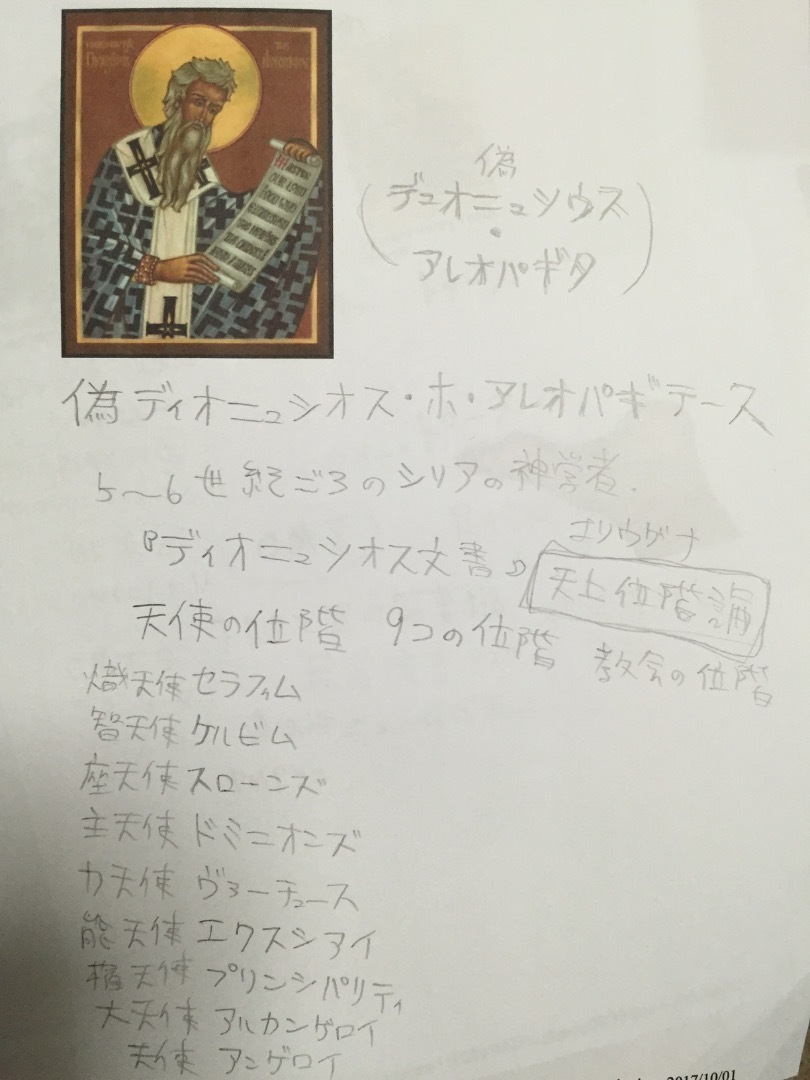 偽
(デュオニュシウス
・
アレオパギタ)
偽ディオニュシオス・ホ・アレオパギテース
5〜6世紀ごろのシリアの神学者.
エリウゲナ
『ディオニュシオス文書』天上位階論
天使の位階 9つの位階 教会の位階
熾天使 セラフィム
智天使 ケルビム
座天使 スローンズ
主天使 ドミニオンズ
力天使 ヴァーチュース
能天使 エクスシアイ
権天使 プリンシパリティ
大天使 アルカンゲロイ
天使 アンゲロイ
2017/10/01